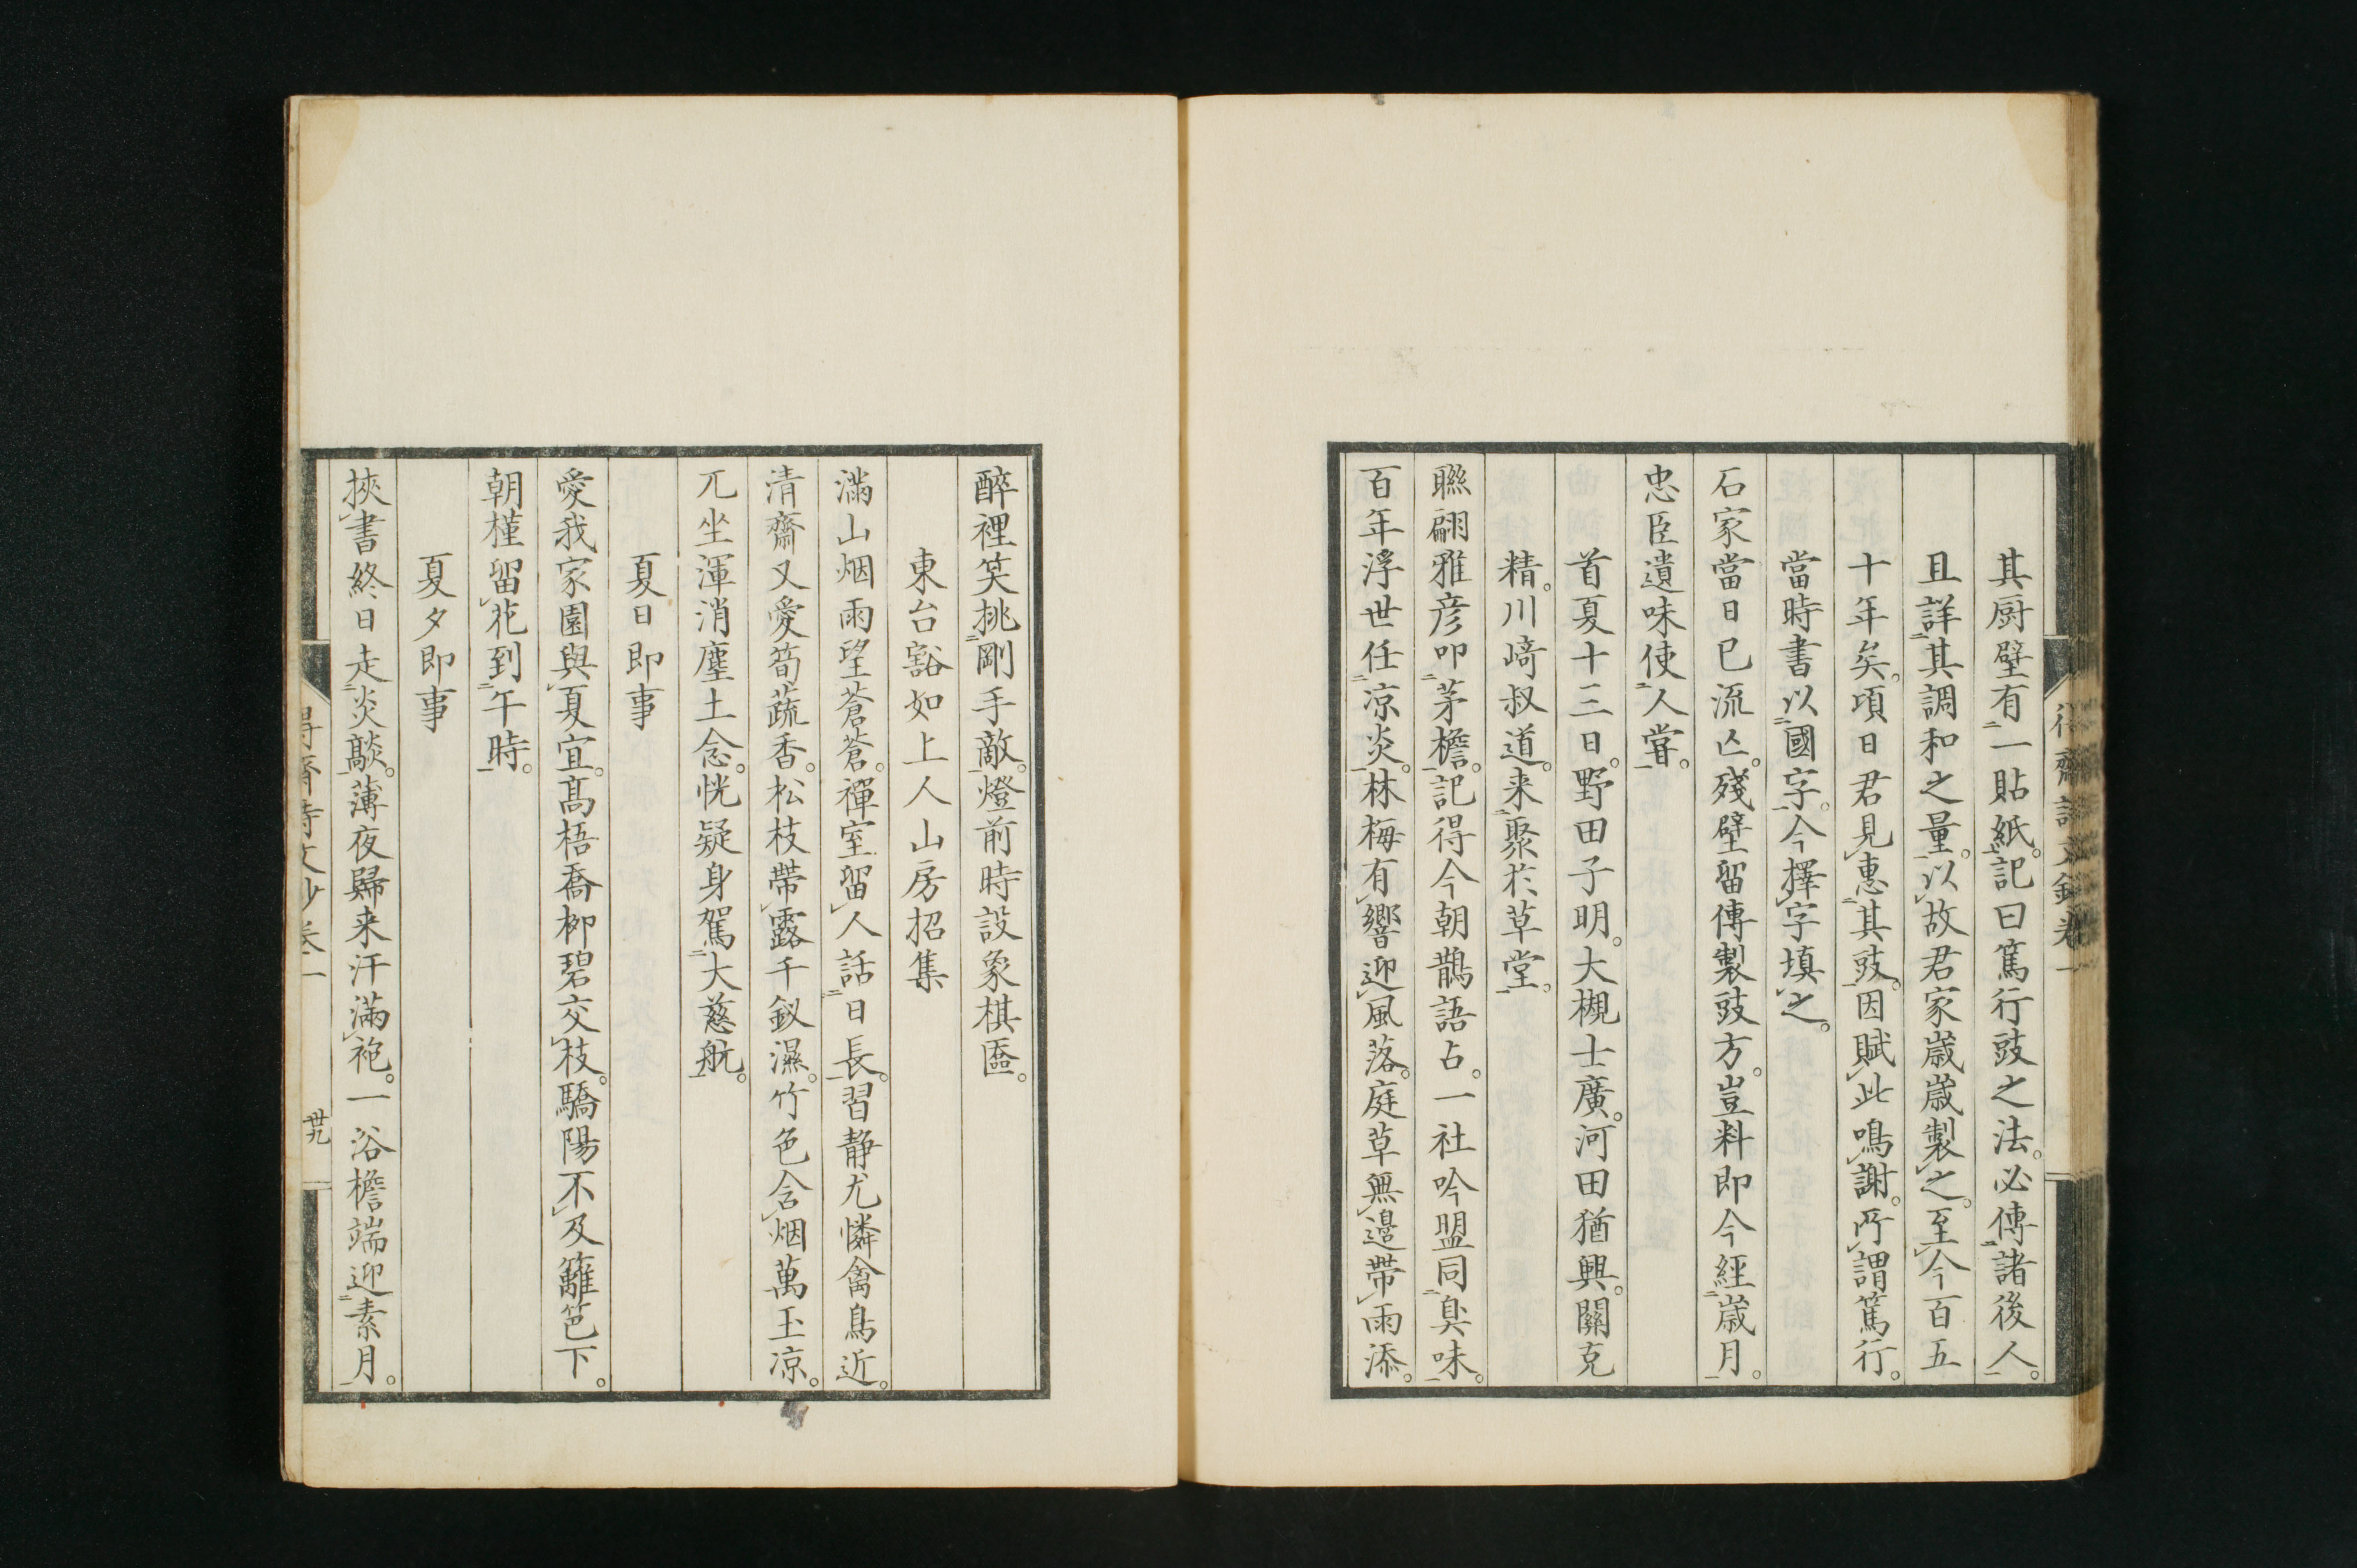 其厨壁有一貼紙。記曰篤行豉之法。必傳諸後人。
且詳其調和之量。以故君家歳歳製之。至今百五
十年矣。頃日君見惠其豉。因賦此鳴謝。所謂篤行。
當時書以國字。今擇字填之。
石家當日已流亡。殘壁留傳製豉方。豈料即今經歳月。
忠臣遺味使人甞。
首夏十三日。野田子明。大槻士廣。河田猶興。關克
精。川﨑叔道。来聚於草堂。
聮翩雅彦叩茅檐。記得今朝鵲語占。一社吟盟同臭味。
百年浮世任凉炎。林梅有響迎風落。庭草無邉帶雨添。
醉裡笑挑剛手敵。燈前時設象棋匳。
東台豁如上人山房招集
滿山烟雨望蒼蒼。禪室留人話日長。習静尤憐禽鳥近。
清齋又愛筍蔬香。松枝帶露千釵濕。竹色含烟萬玉凉。
兀坐渾消塵土念。恍疑身駕大慈航。
夏日即事
愛我家園與夏宜。髙梧喬柳碧交枝。驕陽不及籬笆下。
朝槿留花到午時。
夏夕即事
挾書終日走炎歊。薄夜歸来汗滿袍。一浴檐端迎素月。
卅九